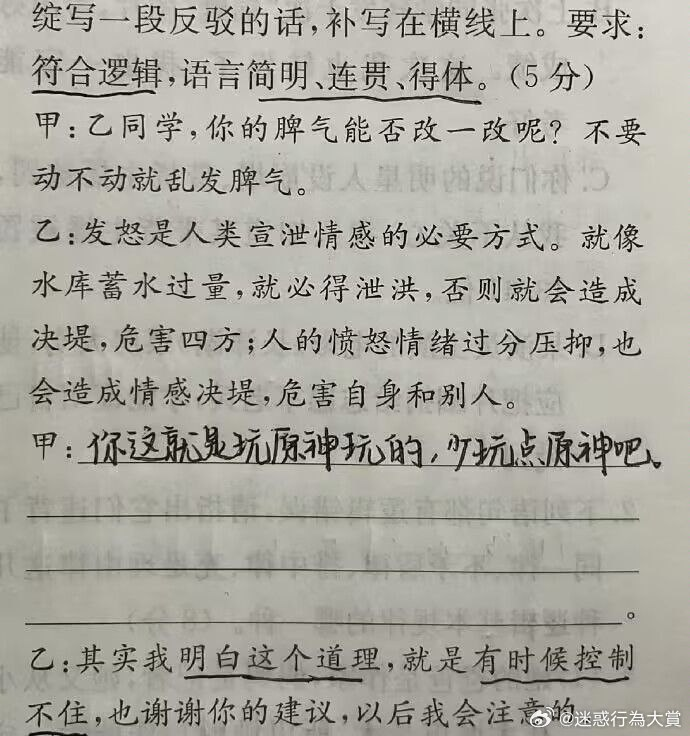 绽写一段反驳的话,补写在横线上。要求:
符合逻辑,语言简明、连贯、得体。(5分)
甲:乙同学,你的脾气能否改一改呢?不要
动不动就乱发脾气。
乙:发怒是人类宣泄情感的必要方式。就像
水库蓄水过量,就必得泄洪,否则就会造成
决堤,危害四方;人的愤怒情绪过分压抑,也
会造成情感决堤,危害自身和别人。
甲:你这就是玩原神玩的,少玩点原神吧。
。
乙:其实我明白这个道理,就是有时候控制
不住,也谢谢你的建议,以后我会注意的
@迷惑行為大賞